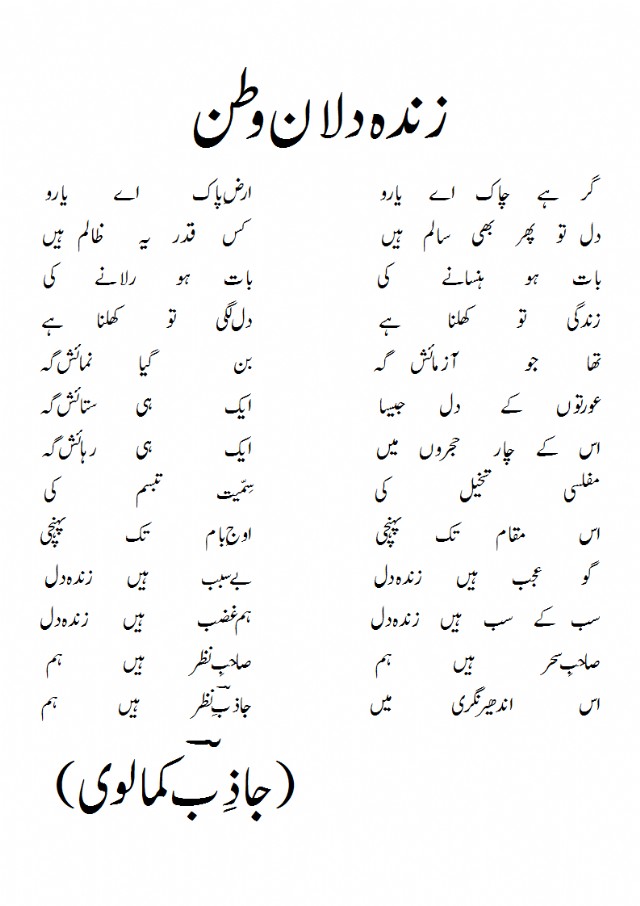 زندہ دلان وطن
گر ہے چاک اے یارو ارضِ پاک اے یارو
دل تو پھر بھی سالم ہیں کس قدر یہ ظالم ہیں
بات ہو ہنسانے کی بات ہو رلانے کی
زندگی تو کھلنا ہے دل لگی تو کھلنا ہے
تھا جو آزمائش گہ بن گیا نمائش گہ
عورتوں کے دل جیسا ایک ہی ستائش گہ
اس کے چار حجروں میں ایک ہی رہائش گہ
مفلسی تخیل کی سِمّیت تبسم کی
اس مقام تک پہنچی اوج بام تک پہنچی
گو عجب ہیں زندہ دل بے سبب ہیں زندہ دل
سب کے سب ہیں زندہ دل ہم غضب ہیں زندہ دل
صاحبِ سحر ہیں ہم صاحبِ نظر ہیں ہم
اس اندھیر نگری میں جاذبِؔ نظر ہیں ہم
(جاذِبؔ کمالوی)